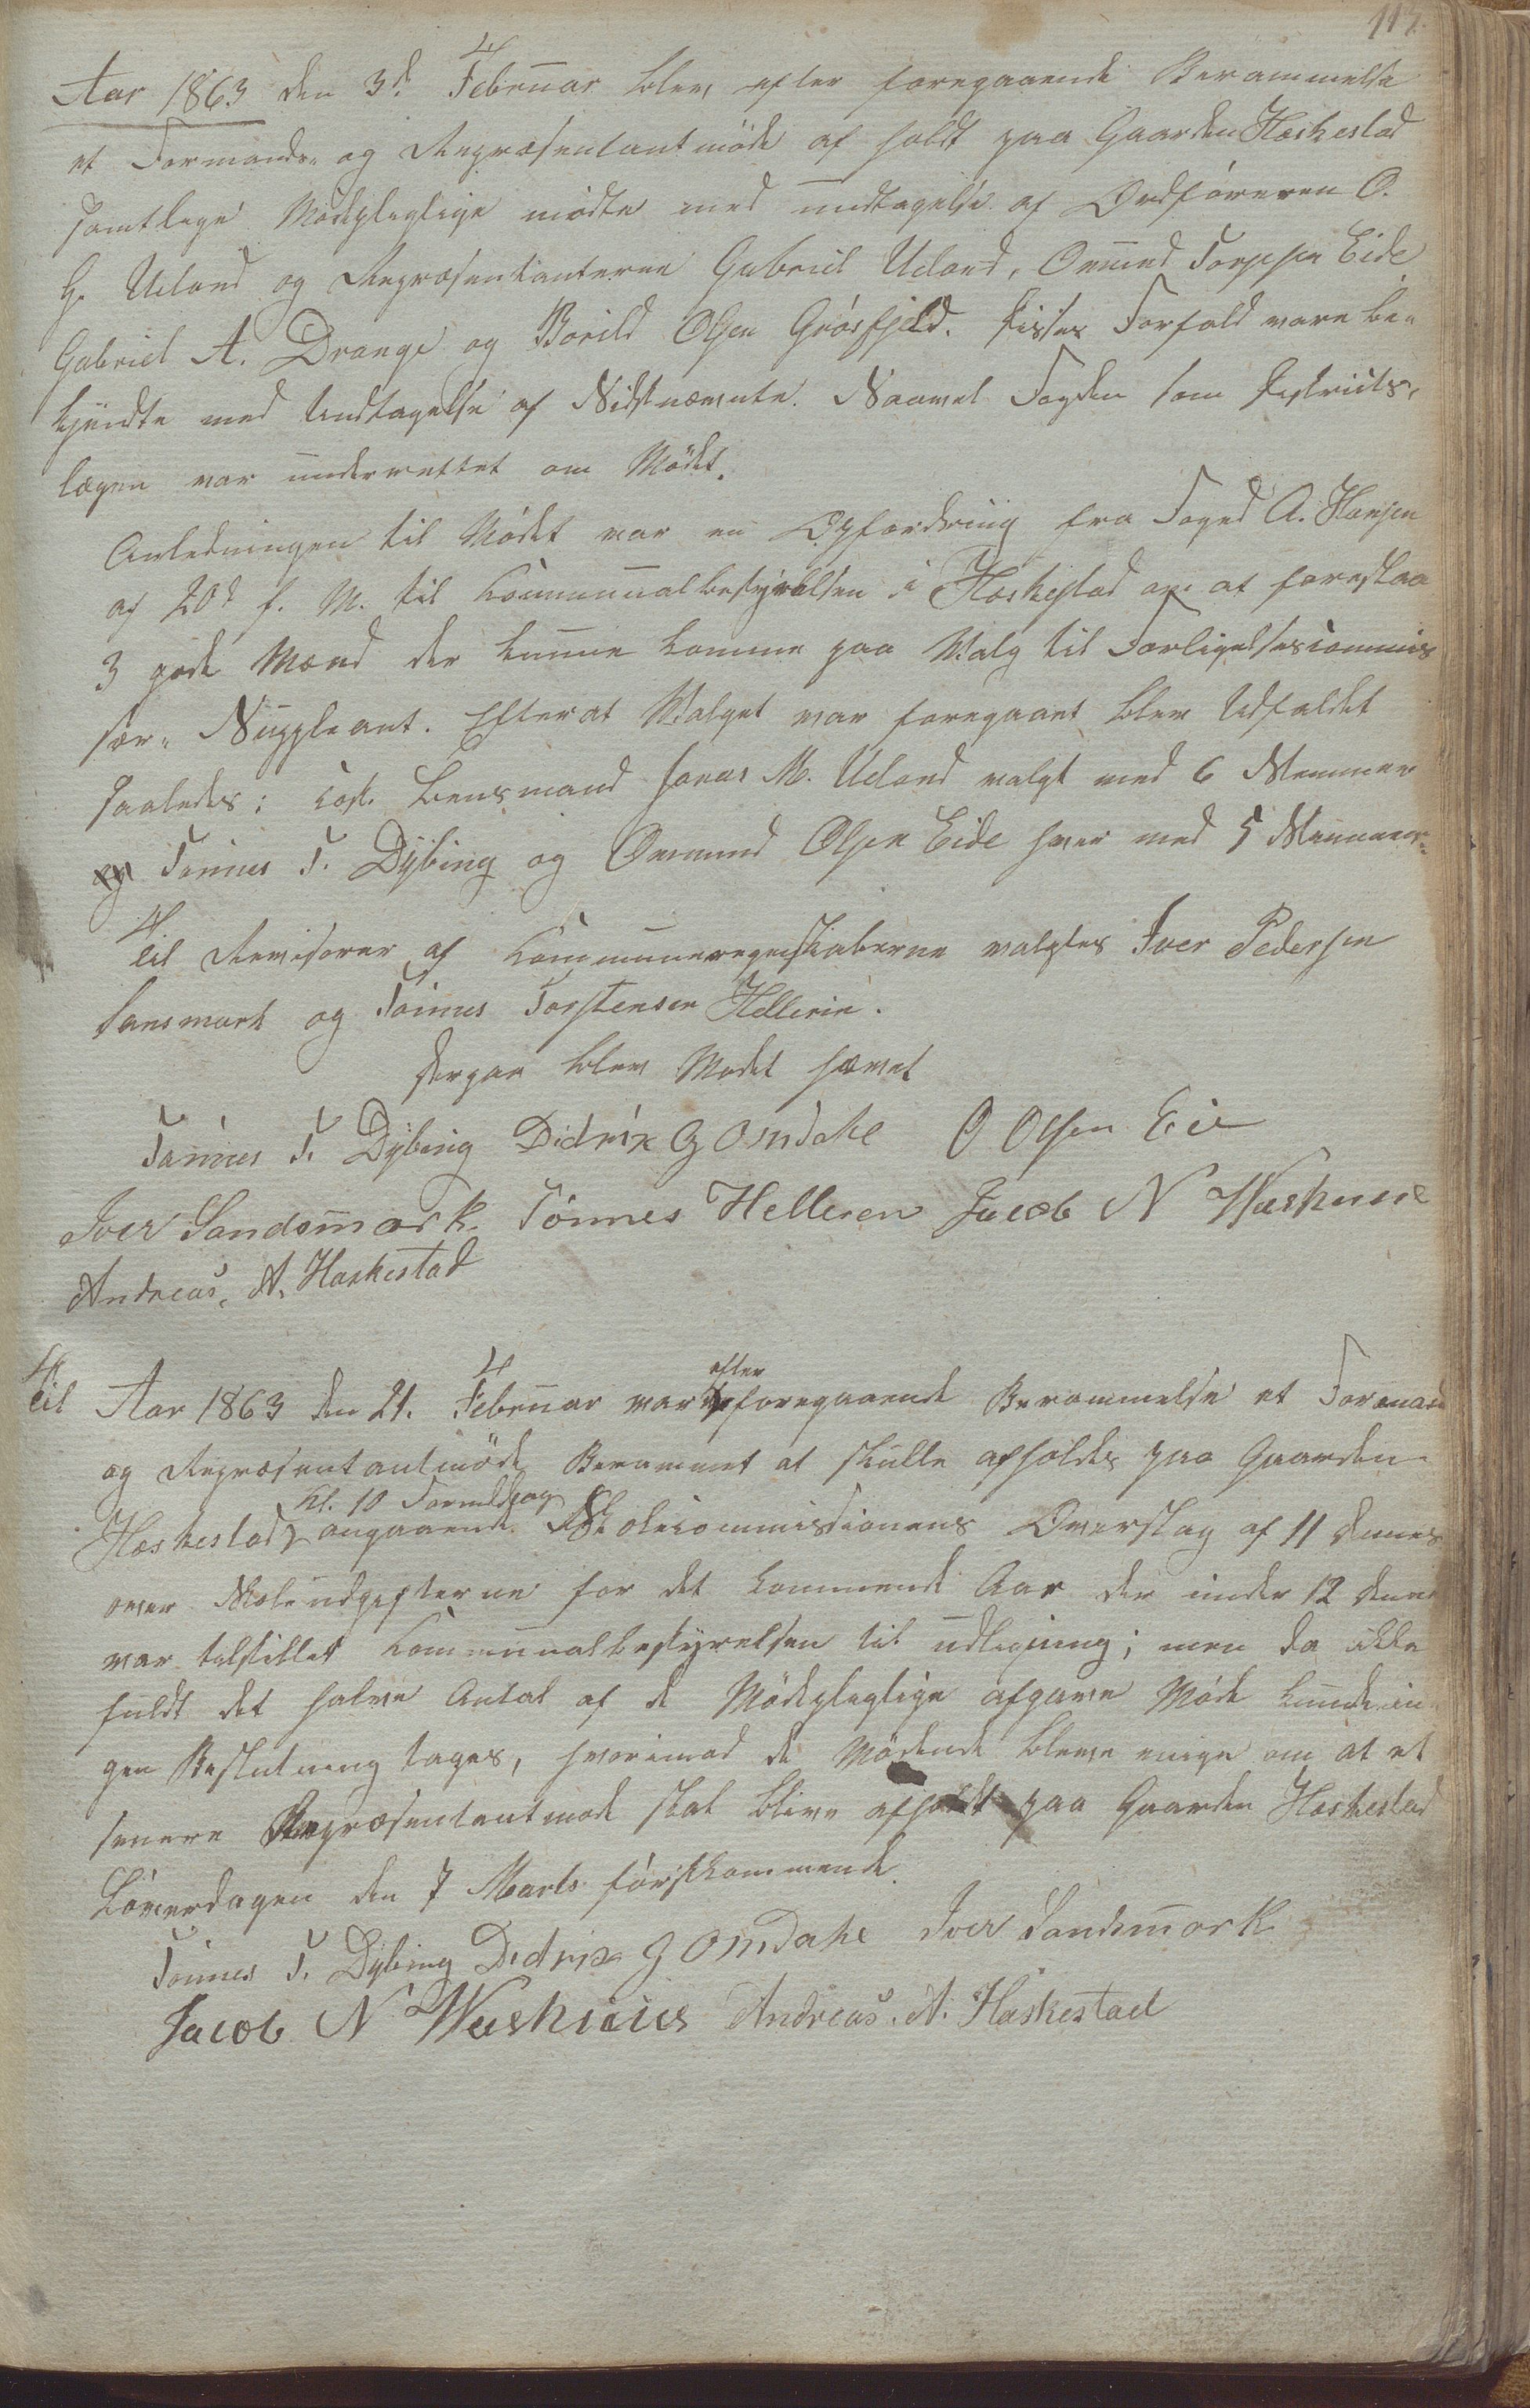 117.
Aar 1863 den 3d. Februar blev efter foregaaende Berammelse
et Formands- og Repræsentantmöde af holdt paa Gaarden Heskestad
samtlige Mödepligtige mödte med undtagelse af Ordföreren O.
G. Ueland og Repræsentanterne Gabriel Ueland, Ommund Torgesen Eide
Gabriel A. Drange og Borild Olsen Grösfjeld. Disses Forfald vare be-
kjendte med Undtagelse af Sidstnævnte. Saavel Fogden som Districts-
lægen var underrettet om Mödet.
Anledningen til Mödet var en Opfordring fra Foged A. Hansen
af 20d. f. M. til Communalbestyrelsen i Heskestad om at foreslaa
3 gode Mænd der kunne komme paa Valg til Forligelsescommis
sær- Suppleant. Efterat Valget var foregaaet blev Udfaldet
saaledes: Lensmand Jonas M. Ueland valgt med 6 Stemmer
og Tönnes T. Dybing og Ommund Olsen Eide hver med 5 Stemmer.
til Revisorer af Communeregnskaberne valgtes Iver Pedersen
Sansmark og Tönnes Torstensen Helleren.
Derpaa blev Mödet hævet
Tönnes T. Dybing Didrix G Omdahl O Olsen Eie
Iver Sandsmark. Tönnes Helleren Jacob N
Andreas. A. Heskestad
til Aar 1863 den 21. Februar var efter foregaaende Berammelse et Formand
og Repræsentantmöde Berammet at skulle afholdes paa Gaarden
Kl. 10 Formiddag
Heskestad angaaende Skolecommissionens Overslag af 11 dennes
over Skoleudgifterne for det kommende Aar der under 12 dennes
var tilstillet Communalbestyrelsen til udligning; men da ikke
fuldt det halve Antal af de Mödepligtige afgave Möde kunde in
gen Beslutning tages, hvorimod de Mödende bleve enige om at et
senere Repræsentantmöde skal blive afholdt paa Gaarden Heskestad
Löverdagen den 7 Marts förstkommende.
Tönnes T. Dybing Didrix G Omdahl Iver Sandsmark
Jacob N Andreas. A. Heskestad